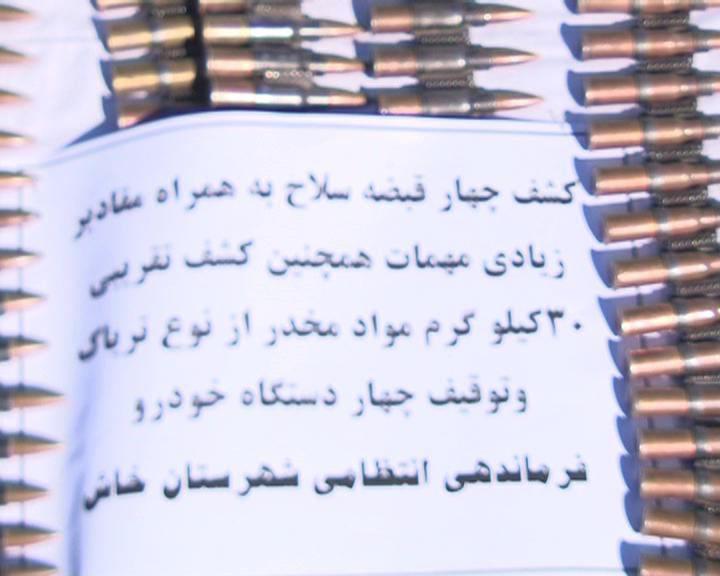 کشف چهار قبضه سلاح به همراه مقادیر
زیادی مهمات همچنین کشف تقریبی
۳۰کیلو گرم مواد مخدر از نوع تریاک
وتوقیف چهار دستگاه خودرو
فرماندهی انتظامی شهرستان خاش